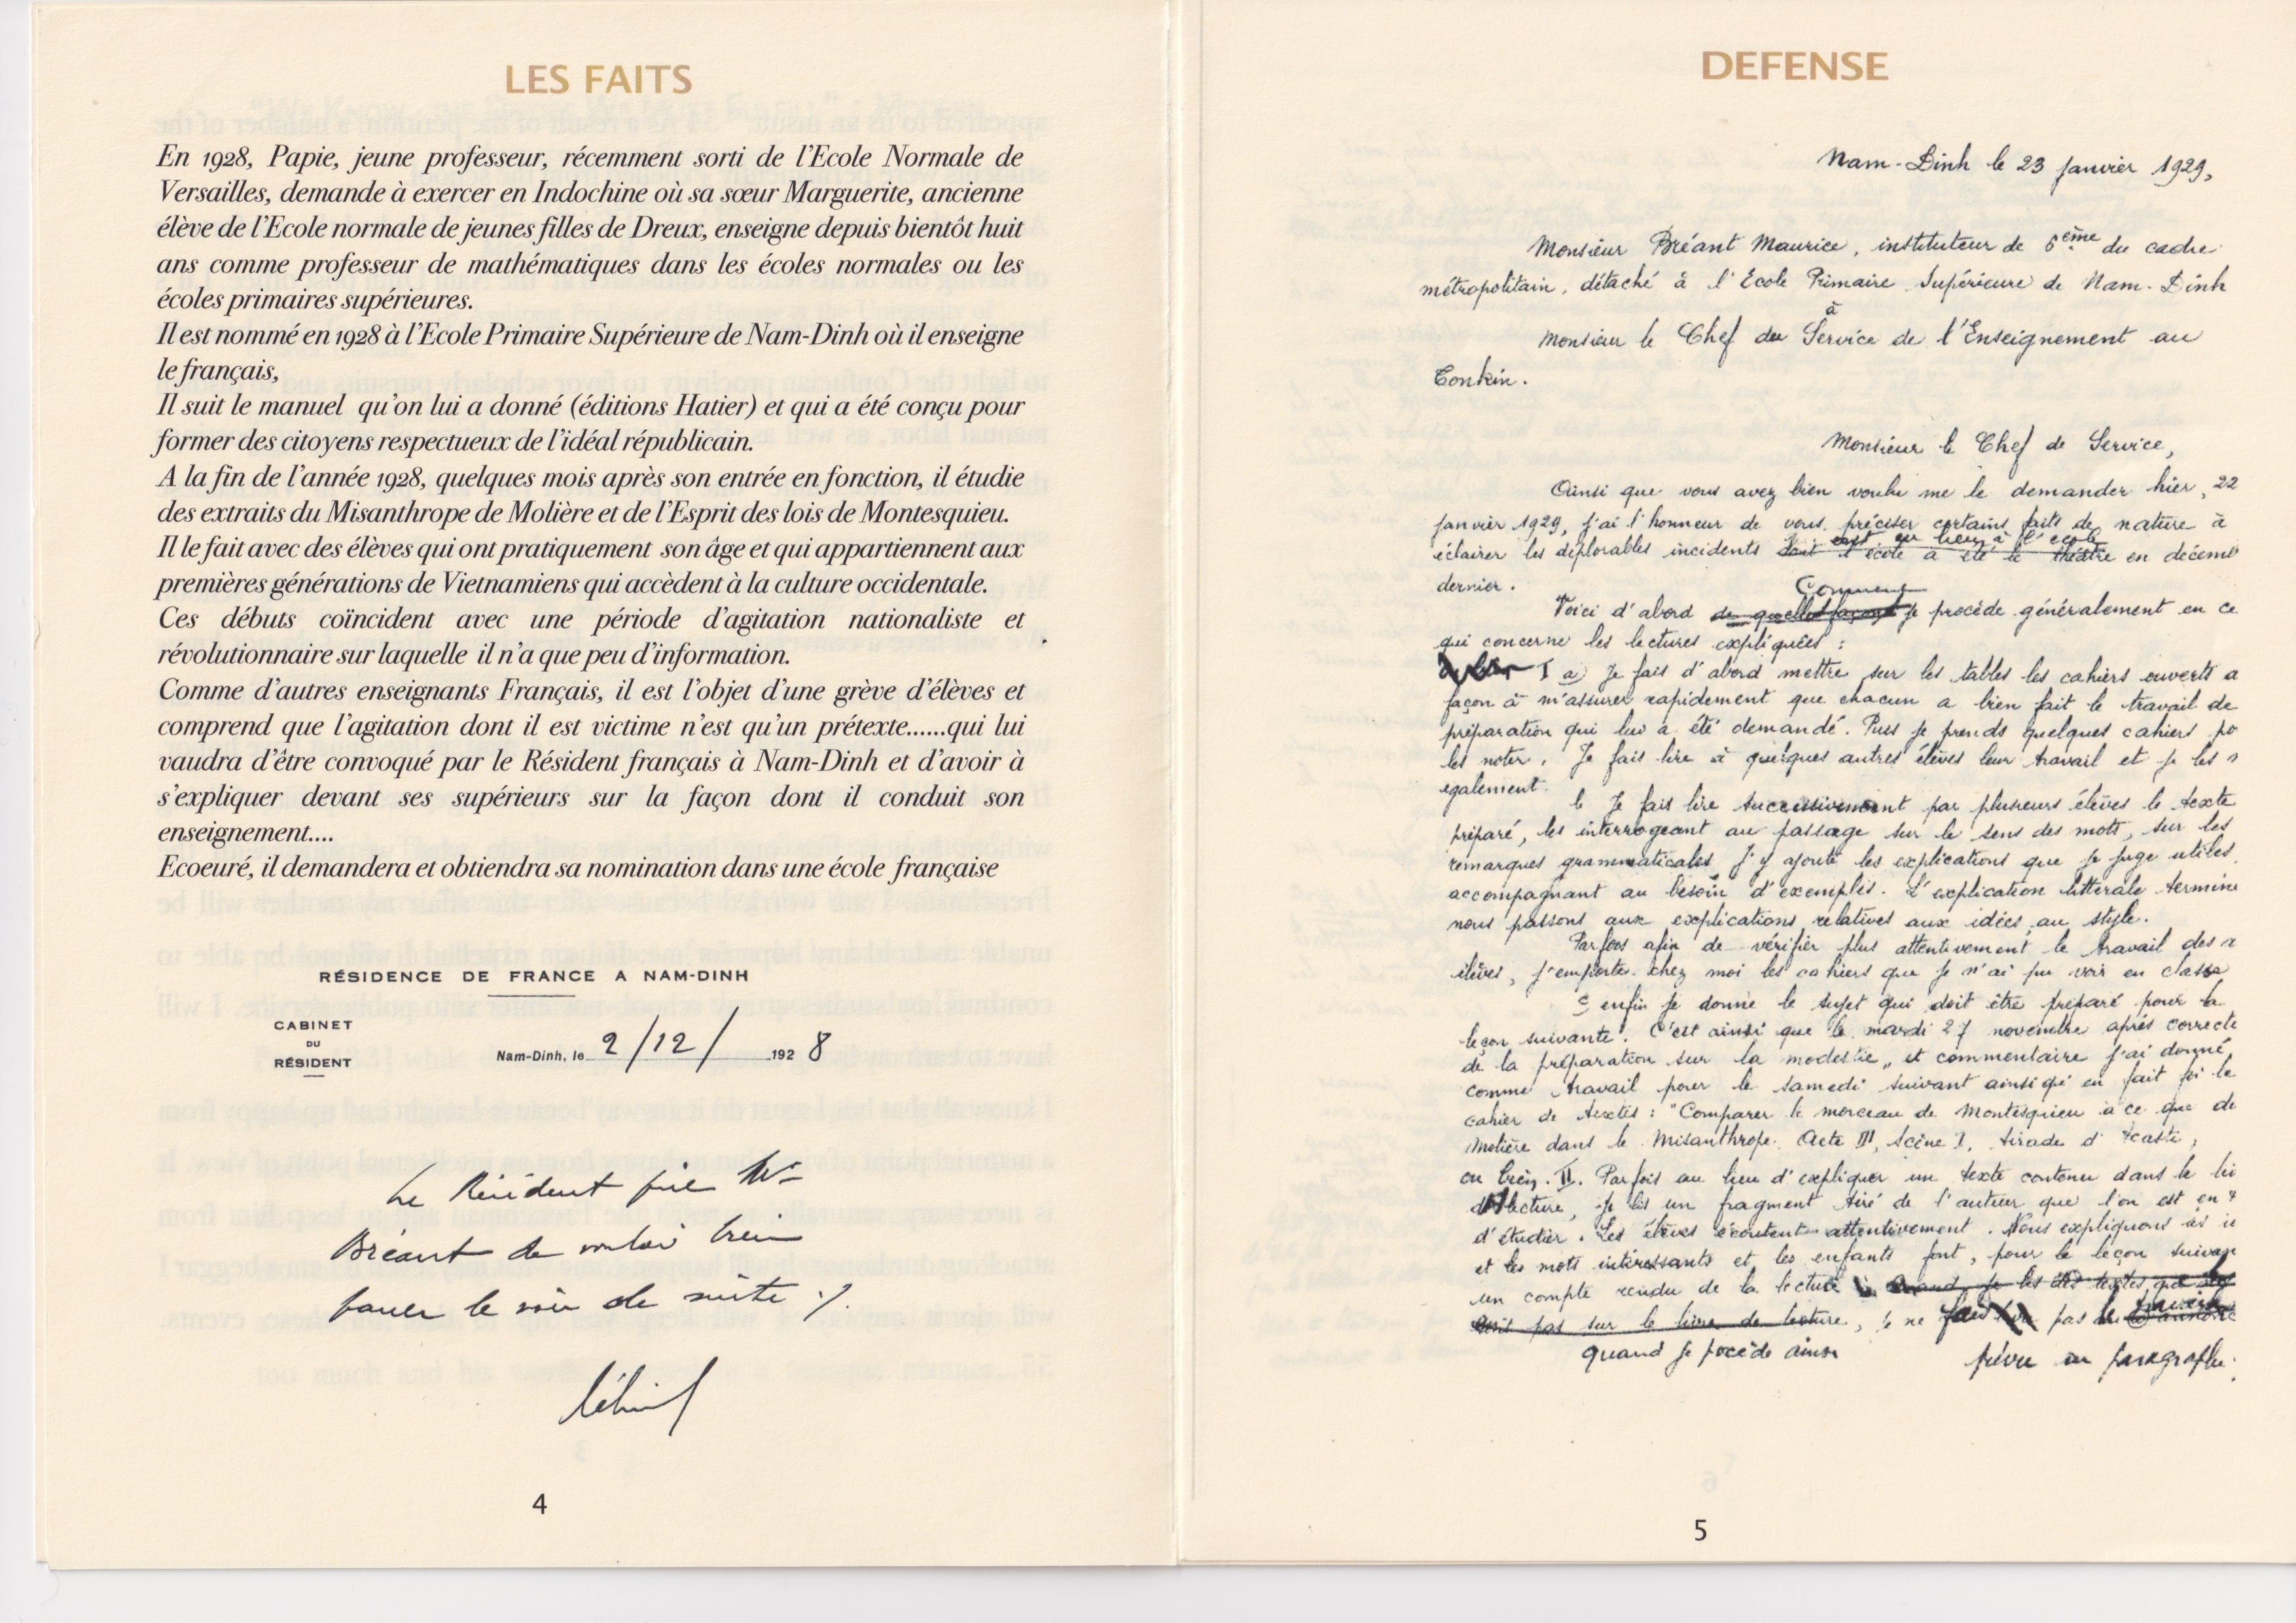 LES FAITS
En 1928, Papie, jeune professeur, récemment sorti de l'Ecole Normale de
Versailles, demande à exercer en Indochine où sa sœur Marguerite, ancienne
élève de l'Ecole normale de jeunes filles de Dreux, enseigne depuis bientôt huit
ans comme professeur de mathématiques dans les écoles normales ou les
écoles primaires supérieures.
Il est nommé en 1928 à l'Ecole Primaire Supérieure de Nam-Dinh où il enseigne
le français,
Il suit le manuel qu'on lui a donné (éditions Hatier) et qui a été conçu pour
former des citoyens respectueux de l'idéal républicain.
A la fin de l'année 1928, quelques mois après son entrée en fonction, il étudie
des extraits du Misanthrope de Molière et de l'Esprit des lois de Montesquieu.
Il le fait avec des élèves qui ont pratiquement son âge et qui appartiennent aux
premières générations de Vietnamiens qui accèdent à la culture occidentale.
Ces débuts coïncident avec une période d'agitation nationaliste et
révolutionnaire sur laquelle il n'a que peu d'information.
Comme d'autres enseignants Français, il est l'objet d'une grève d'élèves et
comprend que l'agitation dont il est victime n'est qu'un prétexte......qui lui
vaudra d'être convoqué par le Résident français à Nam-Dinh et d'avoir à
s'expliquer devant ses supérieurs sur la façon dont il conduit son
enseignement....
Ecoeuré, il demandera et obtiendra sa nomination dans une école française
RÉSIDENCE DE FRANCE A NAM-DINH
CABINET
DU
RÉSIDENT
Nam-Dinh, le 2/12/ 1928
Le Résident prie Mr
Bréant de vouloir bien
passer le voir de suite ./.
4
DEFENSE
Nam-Dinh le 23 janvier 1929,
Monsieur Bréant Maurice, instituteur de 6ème du cadre
métropolitain, détaché à l'Ecole Primaire Supérieure de Nam-Dinh
à
Monsieur le Chef du Service de l'Enseignement au
Tonkin.
Monsieur le Chef de Service,
Ainsi que vous avez bien voulu me le demander hier, 22
janvier 1929, j'ai l'honneur de vous préciser certains faits de nature à
ont eu lieu à l'école
éclairer les déplorables incidents dont l'école a été le théâtre en décem
dernier.
Comment
Voici d'abord de quelle façon je procède généralement en ce
qui concerne les lectures expliquées :
I a) Je fais d'abord mettre sur les tables les cahiers ouverts
façon à m'assurer rapidement que chacun a bien fait le travail de
préparation qui lui a été demandé. Puis je prends quelques cahiers po
les noter. Je fais lire à quelques autres élèves leur travail et je les
également.
b Je fais lire successivement par plusieurs élèves le texte
préparé, les interrogeant au passage sur le sens des mots, sur les
remarques grammaticales. J'y ajoute les explications que je juge utiles
accompagnant au besoin d'exemples. L'explication littérale termine
nous passons aux explications relatives aux idées, au style.
Parfois afin de vérifier plus attentivement le travail des
élèves, j'emporte chez moi les cahiers que je n'ai pu voir en classe
c enfin je donne le sujet qui doit être préparé pour la
leçon suivante. C'est ainsi que le mardi 27 novembre après correcti
de la préparation sur la modestie„ et commentaire j'ai donné
comme travail pour le samedi suivant ainsi qu'en fait foi le
cahier de textes : "Comparer le morceau de Montesquieu à ce que dit
Molière dans le Misanthrope. Acte III, Scène I, tirade d'Acaste,
ou bien. II. Parfois au lieu d'expliquer un texte contenu dans le li
de lecture, je lis un fragment tiré de l'auteur que l'on est en
d'étudier. Les élèves écoutent attentivement. Nous expliquons les
et les mots intéressants et les enfants font, pour la leçon suivan
un compte rendu de la lecture. Quand je lis des textes que
sur le livre de lecture, je ne pas
quand je procède ainsi
5